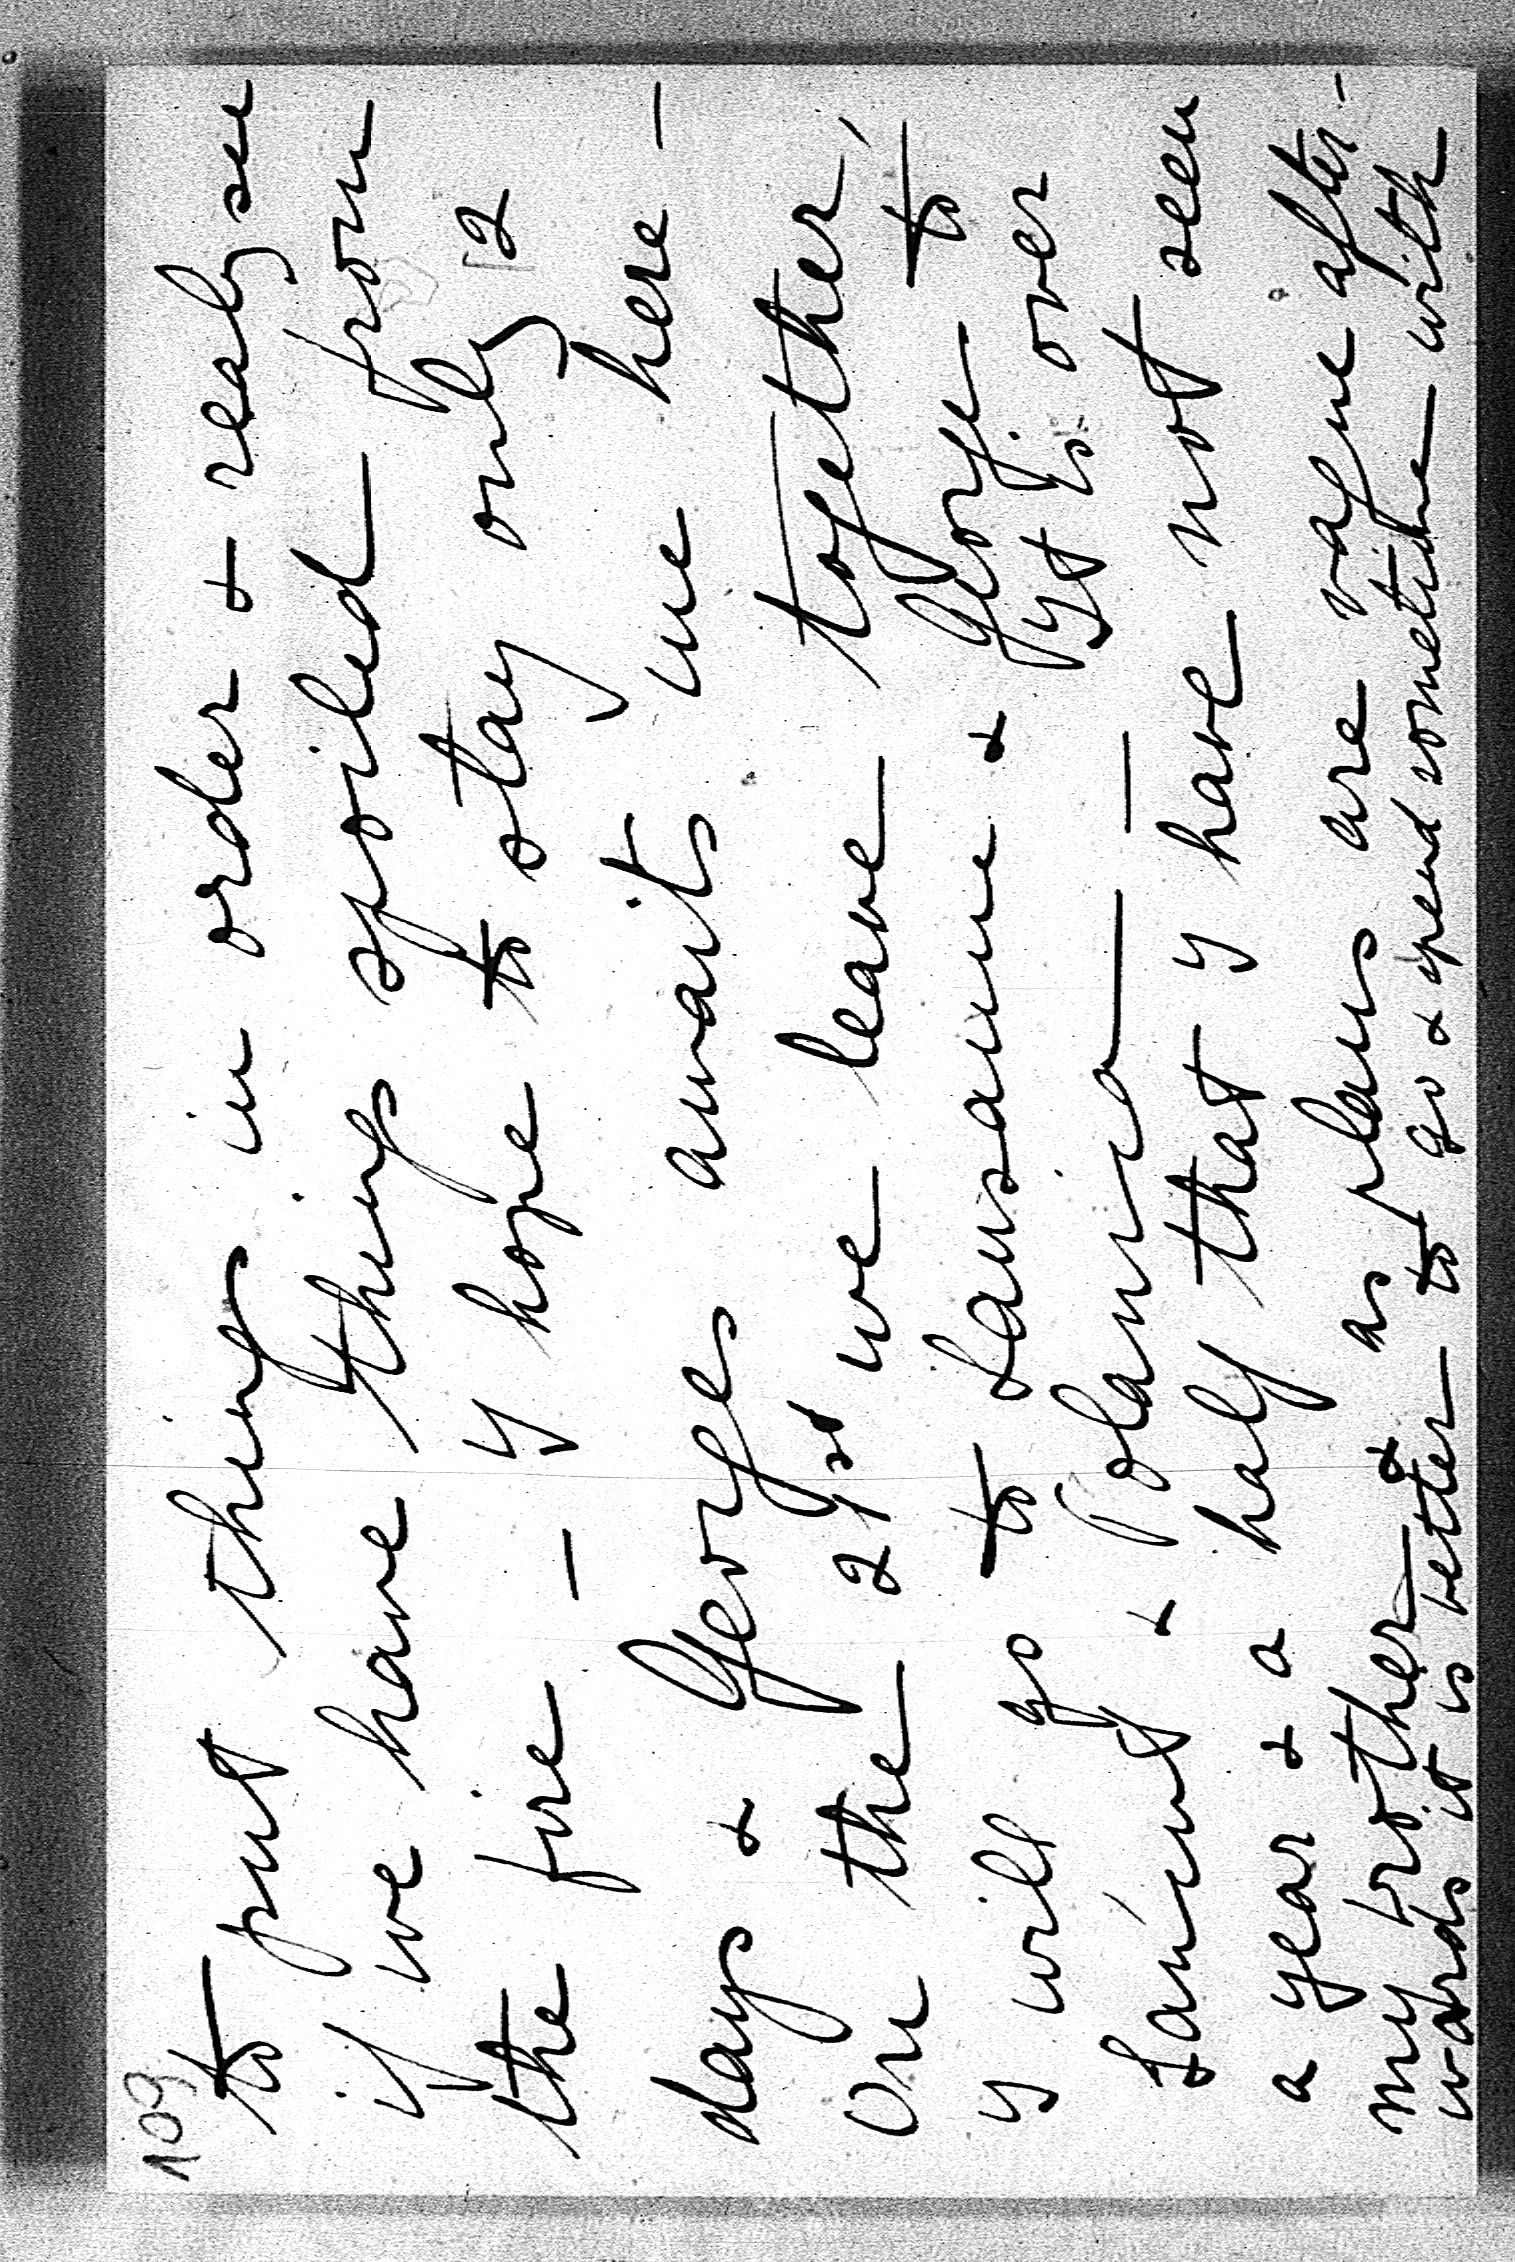 109
to put things in order & realy see
if we have things spoiled from
the fire – y hope to stay only 12
days & Georges awaits me here –
On the 21st we leave together,
y will go to Lausanne & George to
Lancut & Polanica — yt is over
a year & a half that y have not seen
my brother & as plans are vague after-
wards it is better to go & spend sometime with